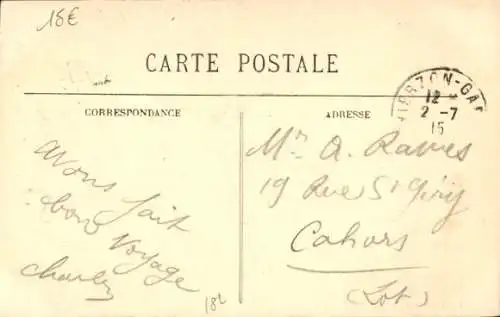 15€
CARTE POSTALE
CORRESPONDANCE
ADRESSE
VIERZON-GARE
12 -
2 -7
15
Avons fait
bon voyage
Charley
Mr A. Rames
19 Rue St Géry
Cahors
(Lot)